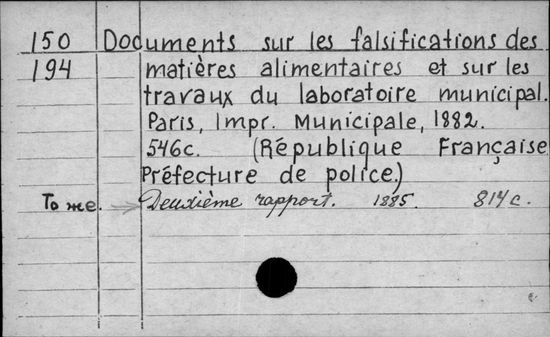 150 Documents sur les falsifications des
194 matières alimentaires et sur les
travaux du laboratoire municipal.
Paris, Impr. Municipale, 1882.
546c. (République Française
Préfecture de police.)
То же. Deuxième rapport. 1885. 814c.